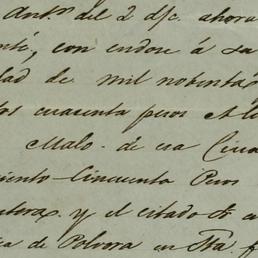 Antº del 2 d/c. ahora
con endoso á su
dad de mil noventa
tos cuarenta pesos
Malo. de esa Ciu
iento Cincuenta Pesos
y el citado
ca de Polvora en Sta. f